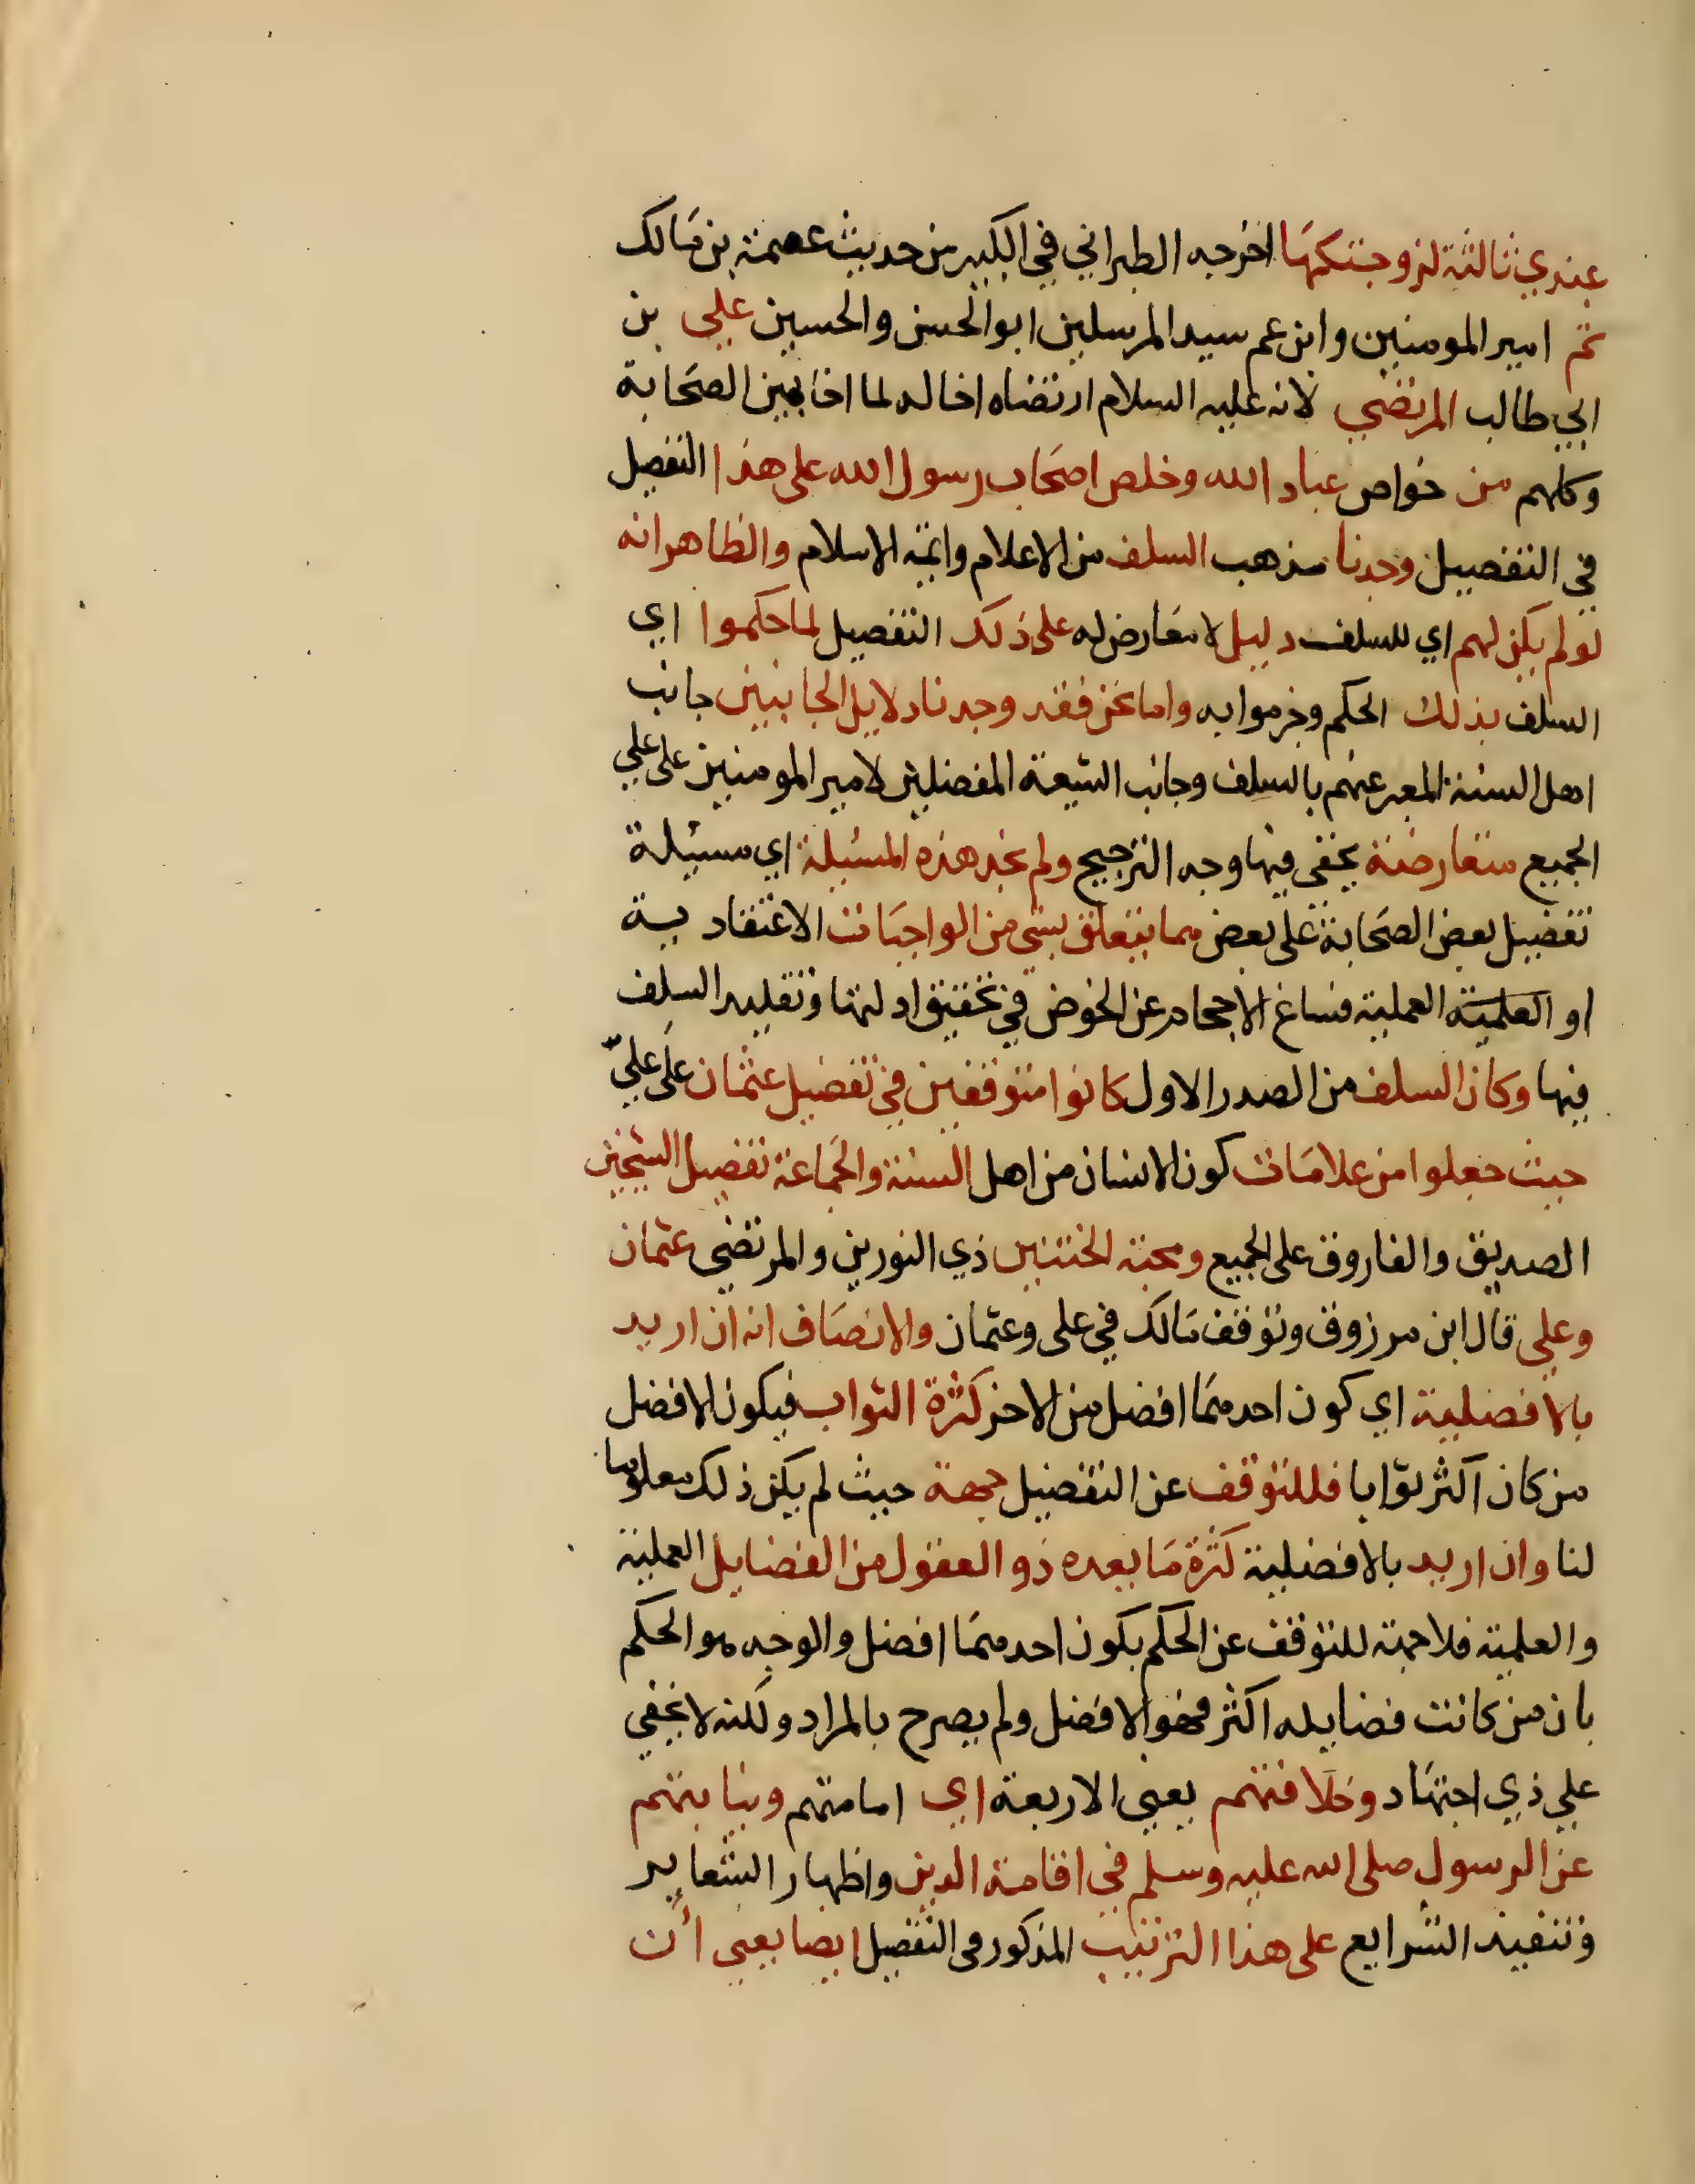 عندي ثالثة لزوجتكها اخرجه الطبراني في الكبير من حديث عصمة بن مالك
ثم امير المومنين وابن عم سيد المرسلين ابو الحسن والحسين علي بن
ابي طالب المرتضي لانه عليه السلام ارتضاه اخا له لما اخا بين الصحابة
وكلهم من خواص عباد الله وخلص اصحاب رسول الله على هذا التفضيل
في التفضيل وجدنا مذهب السلف من الاعلام وايمة الاسلام والظاهر انه
لو لم يكن لهم اي للسلف دليل لا معارض له على ذلك التفضيل لما حكموا اي
السلف بذلك الحكم وجزموا به واما نحن فقد وجدنا دلايل الجانبين جانب
اهل السنة المعبر عنهم بالسلف وجانب الشيعة المفضلين لامير المومنين علي علي
الجميع متعارضة يخفى فيها وجه الترجيح ولم نجد هذه المسئلة اي مسيلة
تفضيل بعض الصحابة على بعض مما يتعلق بشي من الواجبات الاعتقادية
او العلمية العملية فساغ الاحجام عن الخوض في تحقيق ادلتها وتقليد السلف
فيها وكان السلف من الصدر الاول كانوا متوقفين في تفضيل عثمان على عليّ
حيث جعلوا من علامات كون الانسان من اهل السنة والجماعة تفضيل الشيخين
الصديق والفاروق على الجميع ومحبة الختنين ذي النورين والمرتضي عثمان
وعلي قال ابن مرزوق وتوقف مالك في على وعثمان والانصاف انه ان اريد
بالافضلية اي كون احدهما افضل من الاخر كثرة الثواب فيكون الافضل
من كان اكثر ثوابا فللتوقف عن التفضيل جهة حيث لم يكن ذلك معلوما
لنا وان اريد بالافضلية كثرة ما يعده ذو العقول من الفضايل العملية
والعلمية فلا جهة للتوقف عن الحكم بكون احدهما افضل والوجه هو الحكم
بان من كانت فضايله اكثر فهو الافضل ولم يصرح بالمراد ولكنه لا يخفي
علي ذي اجتهاد وخلافتهم يعني الاربعة اي امامتهم ونيابتهم
عن الرسول صلى الله عليه وسلم في اقامة الدين واظهار الشعاير
وتنفيذ الشرايع على هذا الترتيب المذكور في التفضيل ايضا يعني أن